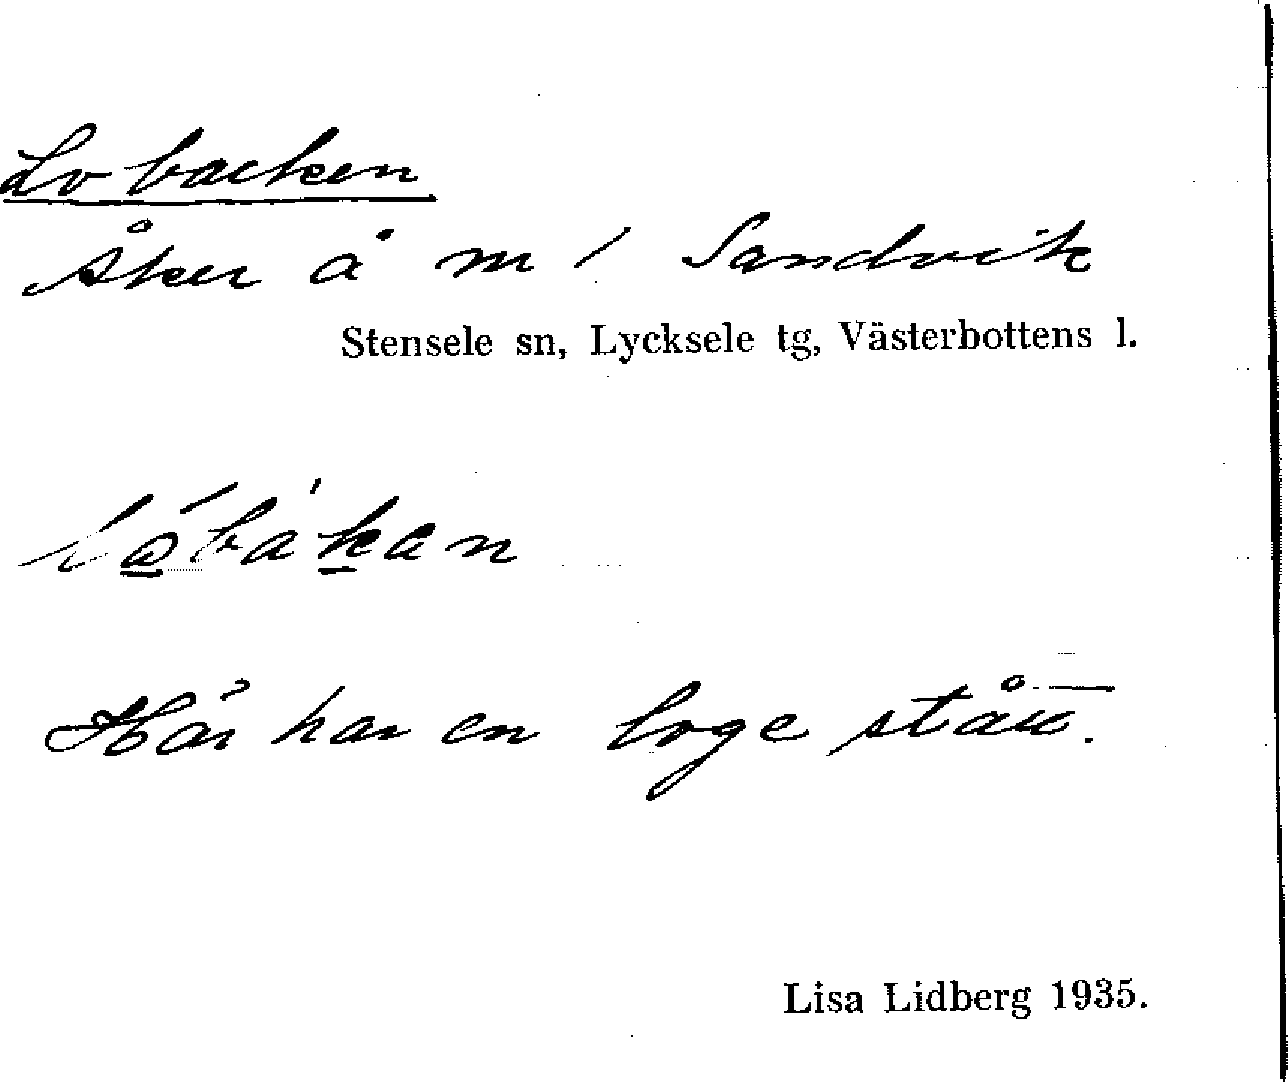 Lobacken
Åker å m 1 Sandvik
Stensele sn, Lycksele tg, Västerbottens l.
Här har en loge stått.
Lisa Lidberg 1935.